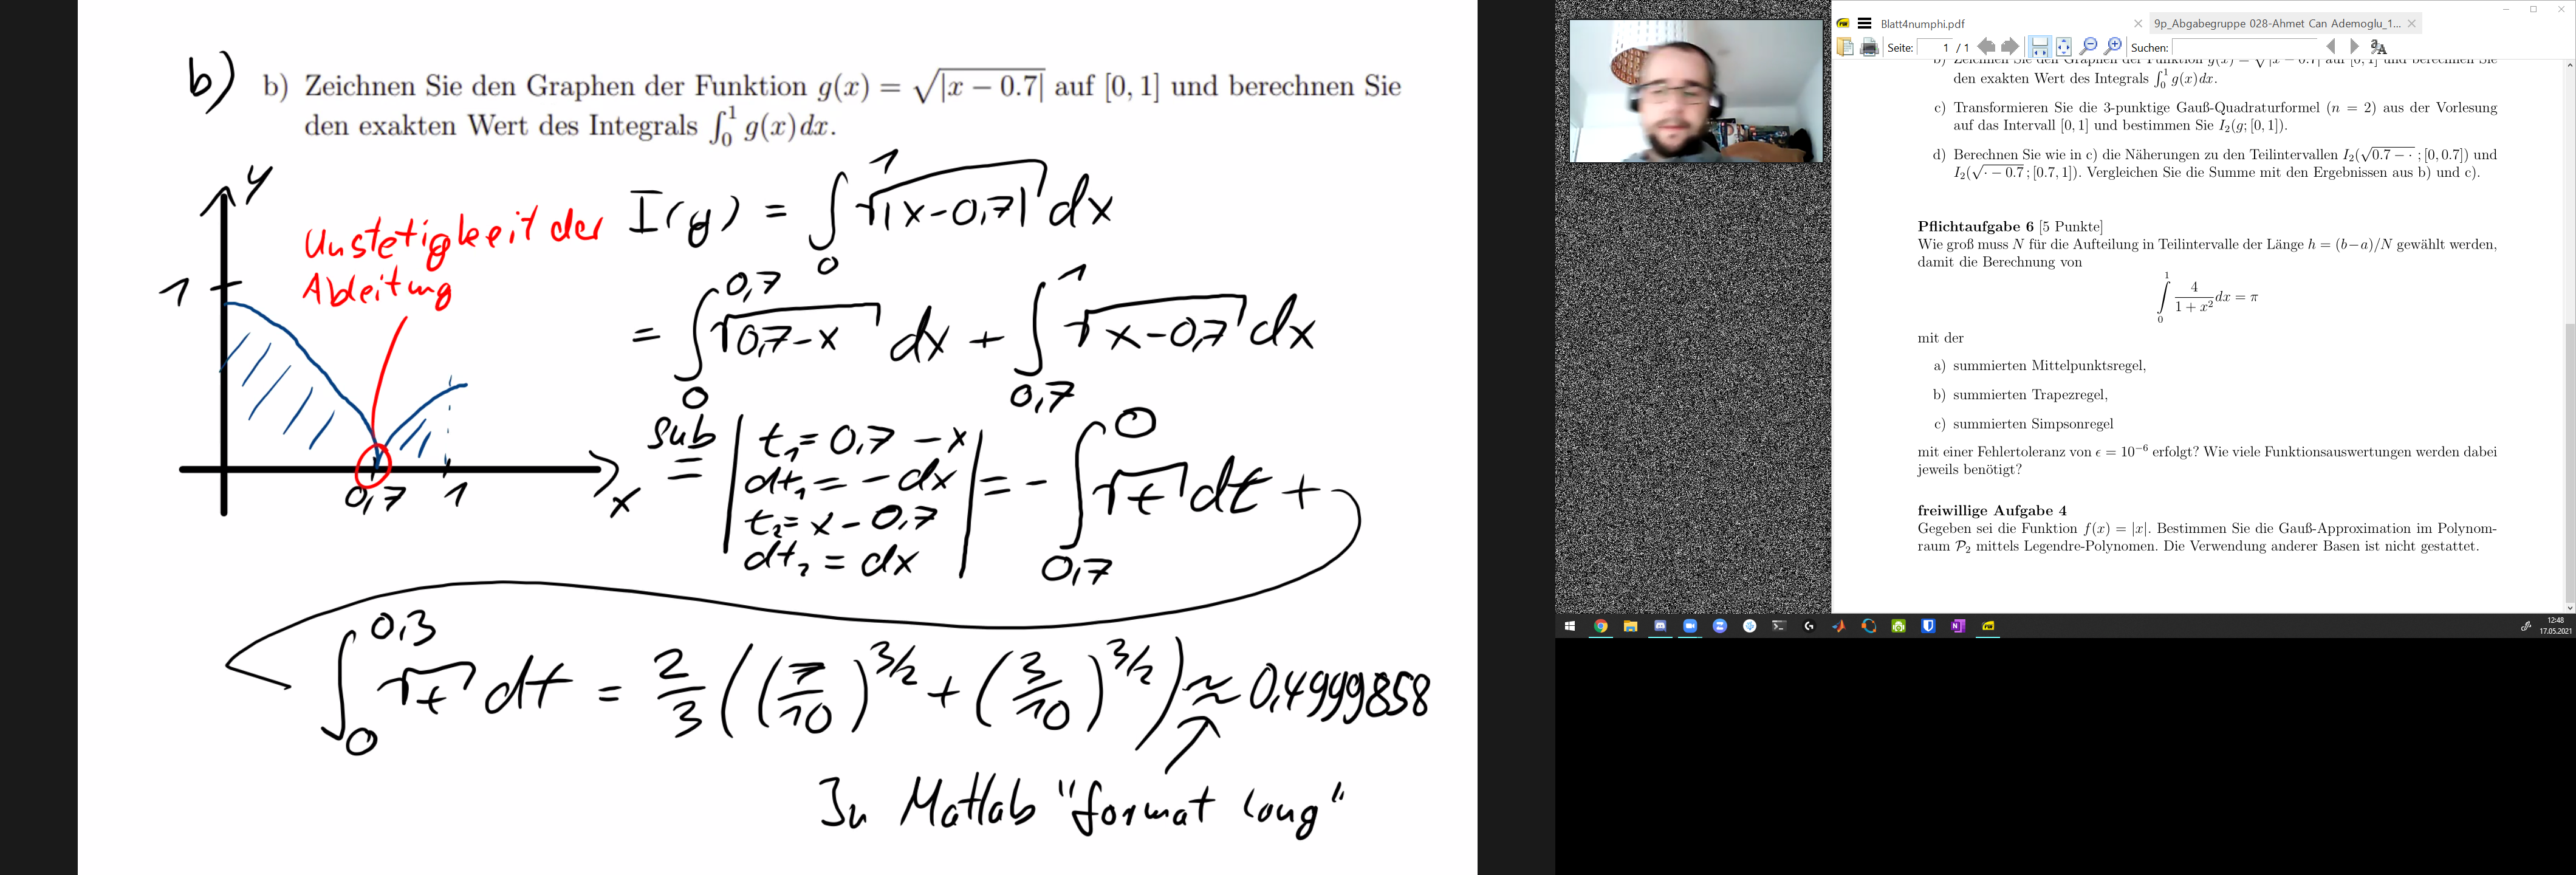 b)
b) Zeichnen Sie den Graphen der Funktion g(x) = √|x − 0.7| auf [0, 1] und berechnen Sie
den exakten Wert des Integrals ∫₀¹ g(x)dx.
y
1
0,7
1
x
Unstetigkeit der
Ableitung
I(g) = ∫₀¹ √|x-0,7| dx
= ∫₀^0,7 √0,7-x dx + ∫_0,7^1 √x-0,7 dx
sub
= | t₁ = 0,7 - x
dt₁ = - dx
t₂ = x - 0,7
dt₂ = dx | = - ∫_0,7^0 √t dt +
∫₀^0,3 √t dt = 2/3 ((7/10)^3/2 + (3/10)^3/2) ≈ 0,4999858
In Matlab "format long"
Blatt4numphi.pdf
9p_Abgabegruppe 028-Ahmet Can Ademoglu_1...
Seite: 1 / 1
Suchen:
b) Zeichnen Sie den Graphen der Funktion g(x) = √|x − 0.7| auf [0, 1] und berechnen Sie
den exakten Wert des Integrals ∫₀¹ g(x)dx.
c) Transformieren Sie die 3-punktige Gauß-Quadraturformel (n = 2) aus der Vorlesung
auf das Intervall [0, 1] und bestimmen Sie I₂(g; [0, 1]).
d) Berechnen Sie wie in c) die Näherungen zu den Teilintervallen I₂(√0.7 − · ; [0, 0.7]) und
I₂(√· − 0.7 ; [0.7, 1]). Vergleichen Sie die Summe mit den Ergebnissen aus b) und c).
Pflichtaufgabe 6 [5 Punkte]
Wie groß muss N für die Aufteilung in Teilintervalle der Länge h = (b−a)/N gewählt werden,
damit die Berechnung von
∫₀¹ 4/(1 + x²) dx = π
mit der
a) summierten Mittelpunktsregel,
b) summierten Trapezregel,
c) summierten Simpsonregel
mit einer Fehlertoleranz von ϵ = 10⁻⁶ erfolgt? Wie viele Funktionsauswertungen werden dabei
jeweils benötigt?
freiwillige Aufgabe 4
Gegeben sei die Funktion f(x) = |x|. Bestimmen Sie die Gauß-Approximation im Polynom-
raum 𝒫₂ mittels Legendre-Polynomen. Die Verwendung anderer Basen ist nicht gestattet.
12:48
17.05.2021